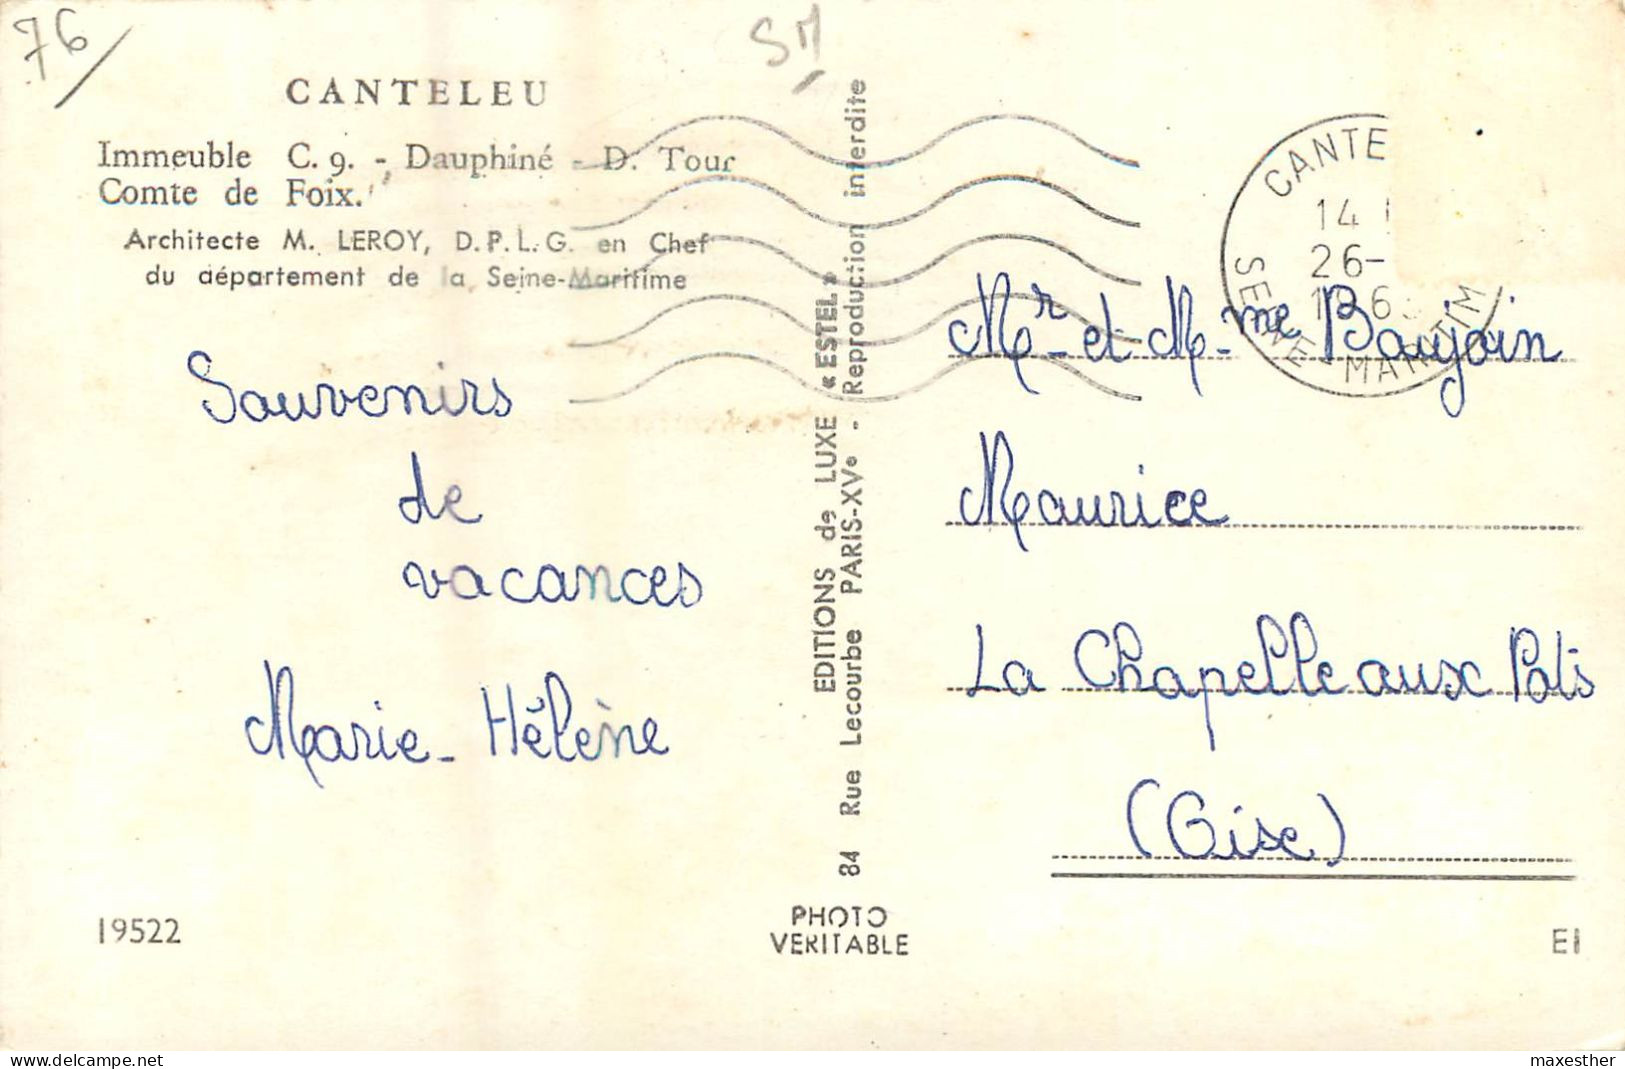 76
SM
CANTELEU
Immeuble C. 9. - Dauphiné - D. Tour
Comte de Foix.
Architecte M. LEROY, D.P.L.G. en Chef
du département de la Seine-Maritime
Souvenirs
de
vacances
Marie-Hélène
19522
EDITIONS de LUXE « ESTEL »
84 Rue Lecourbe PARIS-XVe - Reproduction interdite
PHOTO
VERITABLE
CANTE
14
26-
SEINE-MARITIM
Mr et Mme Baujoin
Maurice
La Chapelle aux Pots
(Oise)
EI
maxesther